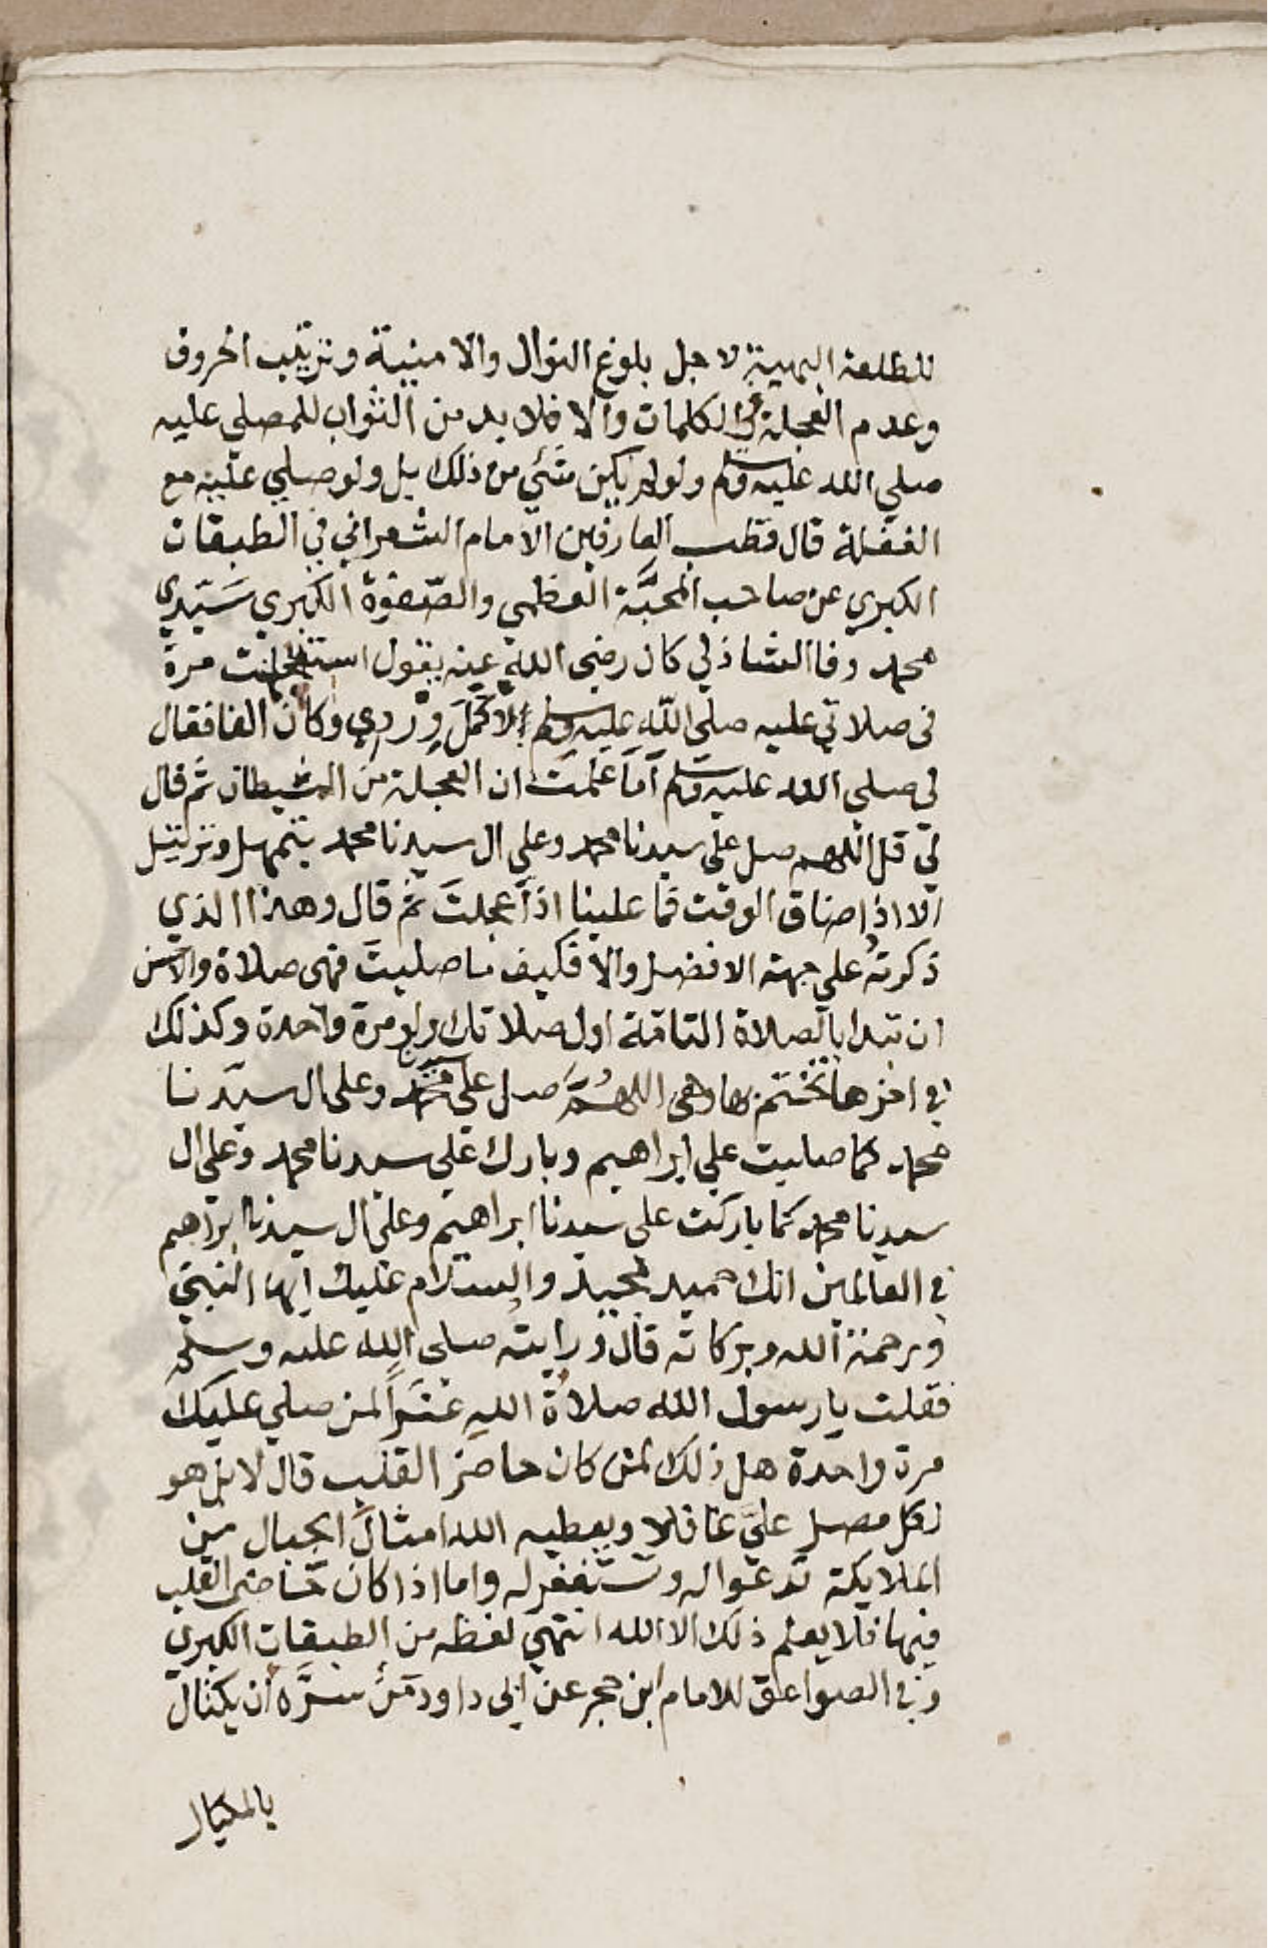 للطلعة البهية لاجل بلوغ النوال والامنية وترتيب الحروف
وعدم العجلة في الكلمات والا فلابد من الثواب للمصلي عليه
صلي الله عليه وسلم ولولم يكن شئ من ذلك بل ولو صلي عليه مع
الغفلة قال قطب العارفين الامام الشعراني في الطبقات
الكبري عن صاحب المحبَّة العظمي والصّفوة الكبري سَيّدي
محمد وفا الشاذلي كان رضي الله عنه يقول استعجلت مرة
في صلاتي عليه صلي اللّه عليه وسلم لاكمّل وِرْدي وكان الفا فقال
لي صلي الله عليه وسلم أمَا عَلمتَ ان العجلة من الشيطان ثم قال
لي قل اللهم صل علي سيدنا محمد وعلي ال سيدنا محمد بتمهل وترتيل
الا اذا ضاق الوقت فما علينا اذا عجلتَ ثم قال وهذا الذي
ذكرتُه علي جهة الافضل والا فكيف ما صليتَ فهي صلاة والاحسن
ان تبدا بالصلاة التامّة اول صلاتك ولو مرة واحدة وكذلك
في اخرها تختم بها وهي اللهُمَّ صل علي محمد وعلي ال سيّدنا
محمد كما صليت علي ابراهيم وبارك علي سيدنا محمد وعلي ال
سيدنا محمد كما باركت علي سيدنا ابراهيم وعلي ال سيدنا ابراهيم
في العالمين انك حميد مجيد والسّلام عليك ايها النبيّ
ورحمة الله وبركاته قال ورايته صلي الله عليه وسلم
فقلت يارسول الله صلاةُ اللهِ عَشراً لمن صلي عليك
مرة واحدة هل ذلك لمن كان حاضر القلب قال لا بل هو
لكل مصل عليّ غافلا ويعطيه الله امثالَ الجبال من
الملايكة تدعوا له وتستغفر له واما اذا كان حاضر القلب
فيها فلا يعلم ذلك الا الله انتهي لفظه من الطبقات الكبري
وفي الصواعق للامام ابن حجر عن ابي داود مَنْ سَرَّه أن يكتال
بالمكيال